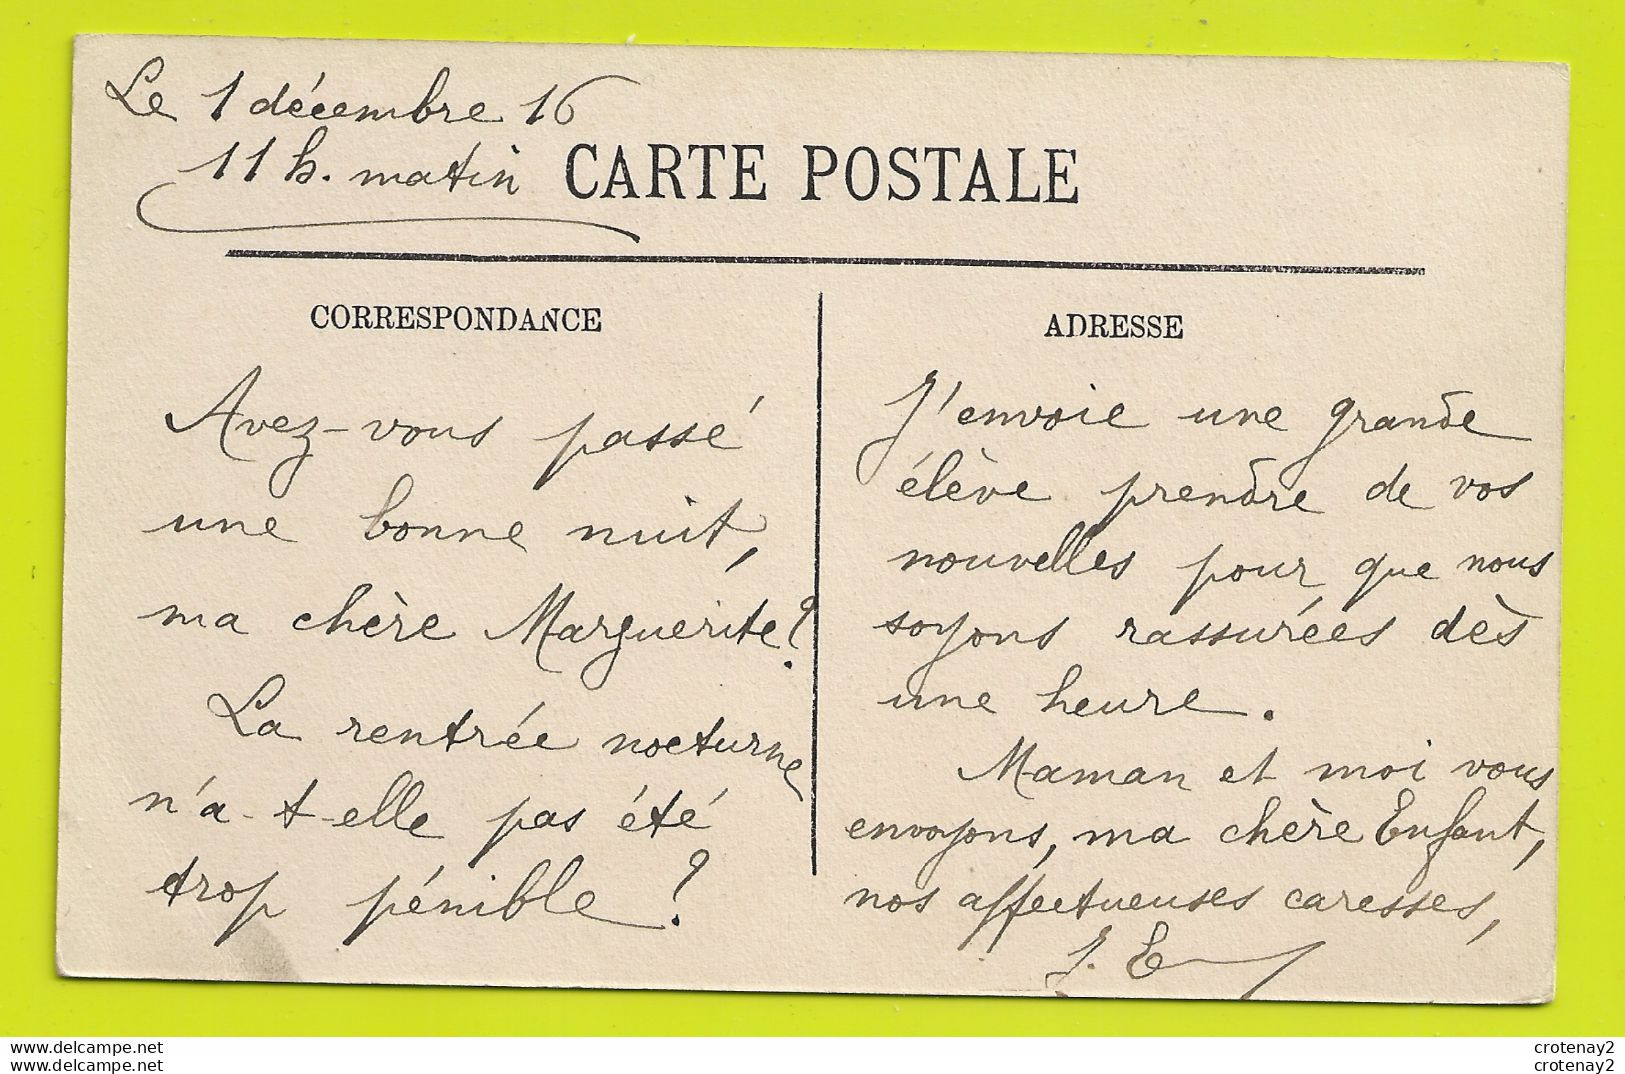 Le 1 décembre 16
11 h. matin
CARTE POSTALE
CORRESPONDANCE
Avez-vous passé
une bonne nuit,
ma chère Marguerite?
La rentrée nocturne
n'a-t-elle pas été
trop pénible?
ADRESSE
J'envoie une grande
élève prendre de vos
nouvelles pour que nous
soyons rassurées dès
une heure.
Maman et moi vous
envoyons, ma chère Enfant,
nos affectueuses caresses,
J. E
www.delcampe.net
www.delcampe.net
crotenay2
crotenay2